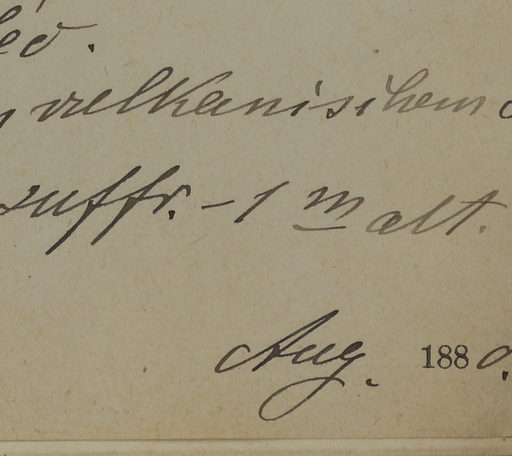 vulkanischem
suffr. – 1 m alt.
Aug. 1880.